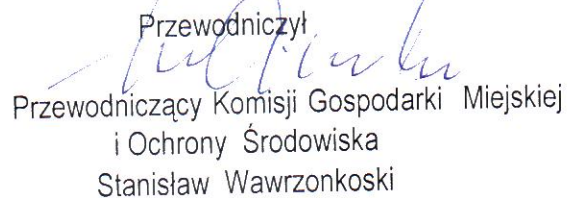 Przewodniczył
Przewodniczący Komisji Gospodarki Miejskiej
i Ochrony Środowiska
Stanisław Wawrzonkoski